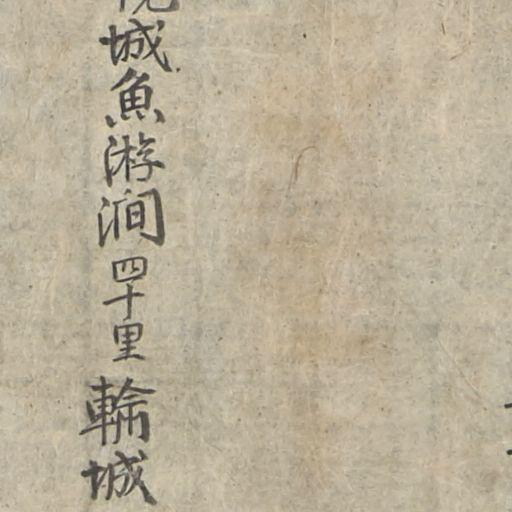 城魚游澗四十里輪城